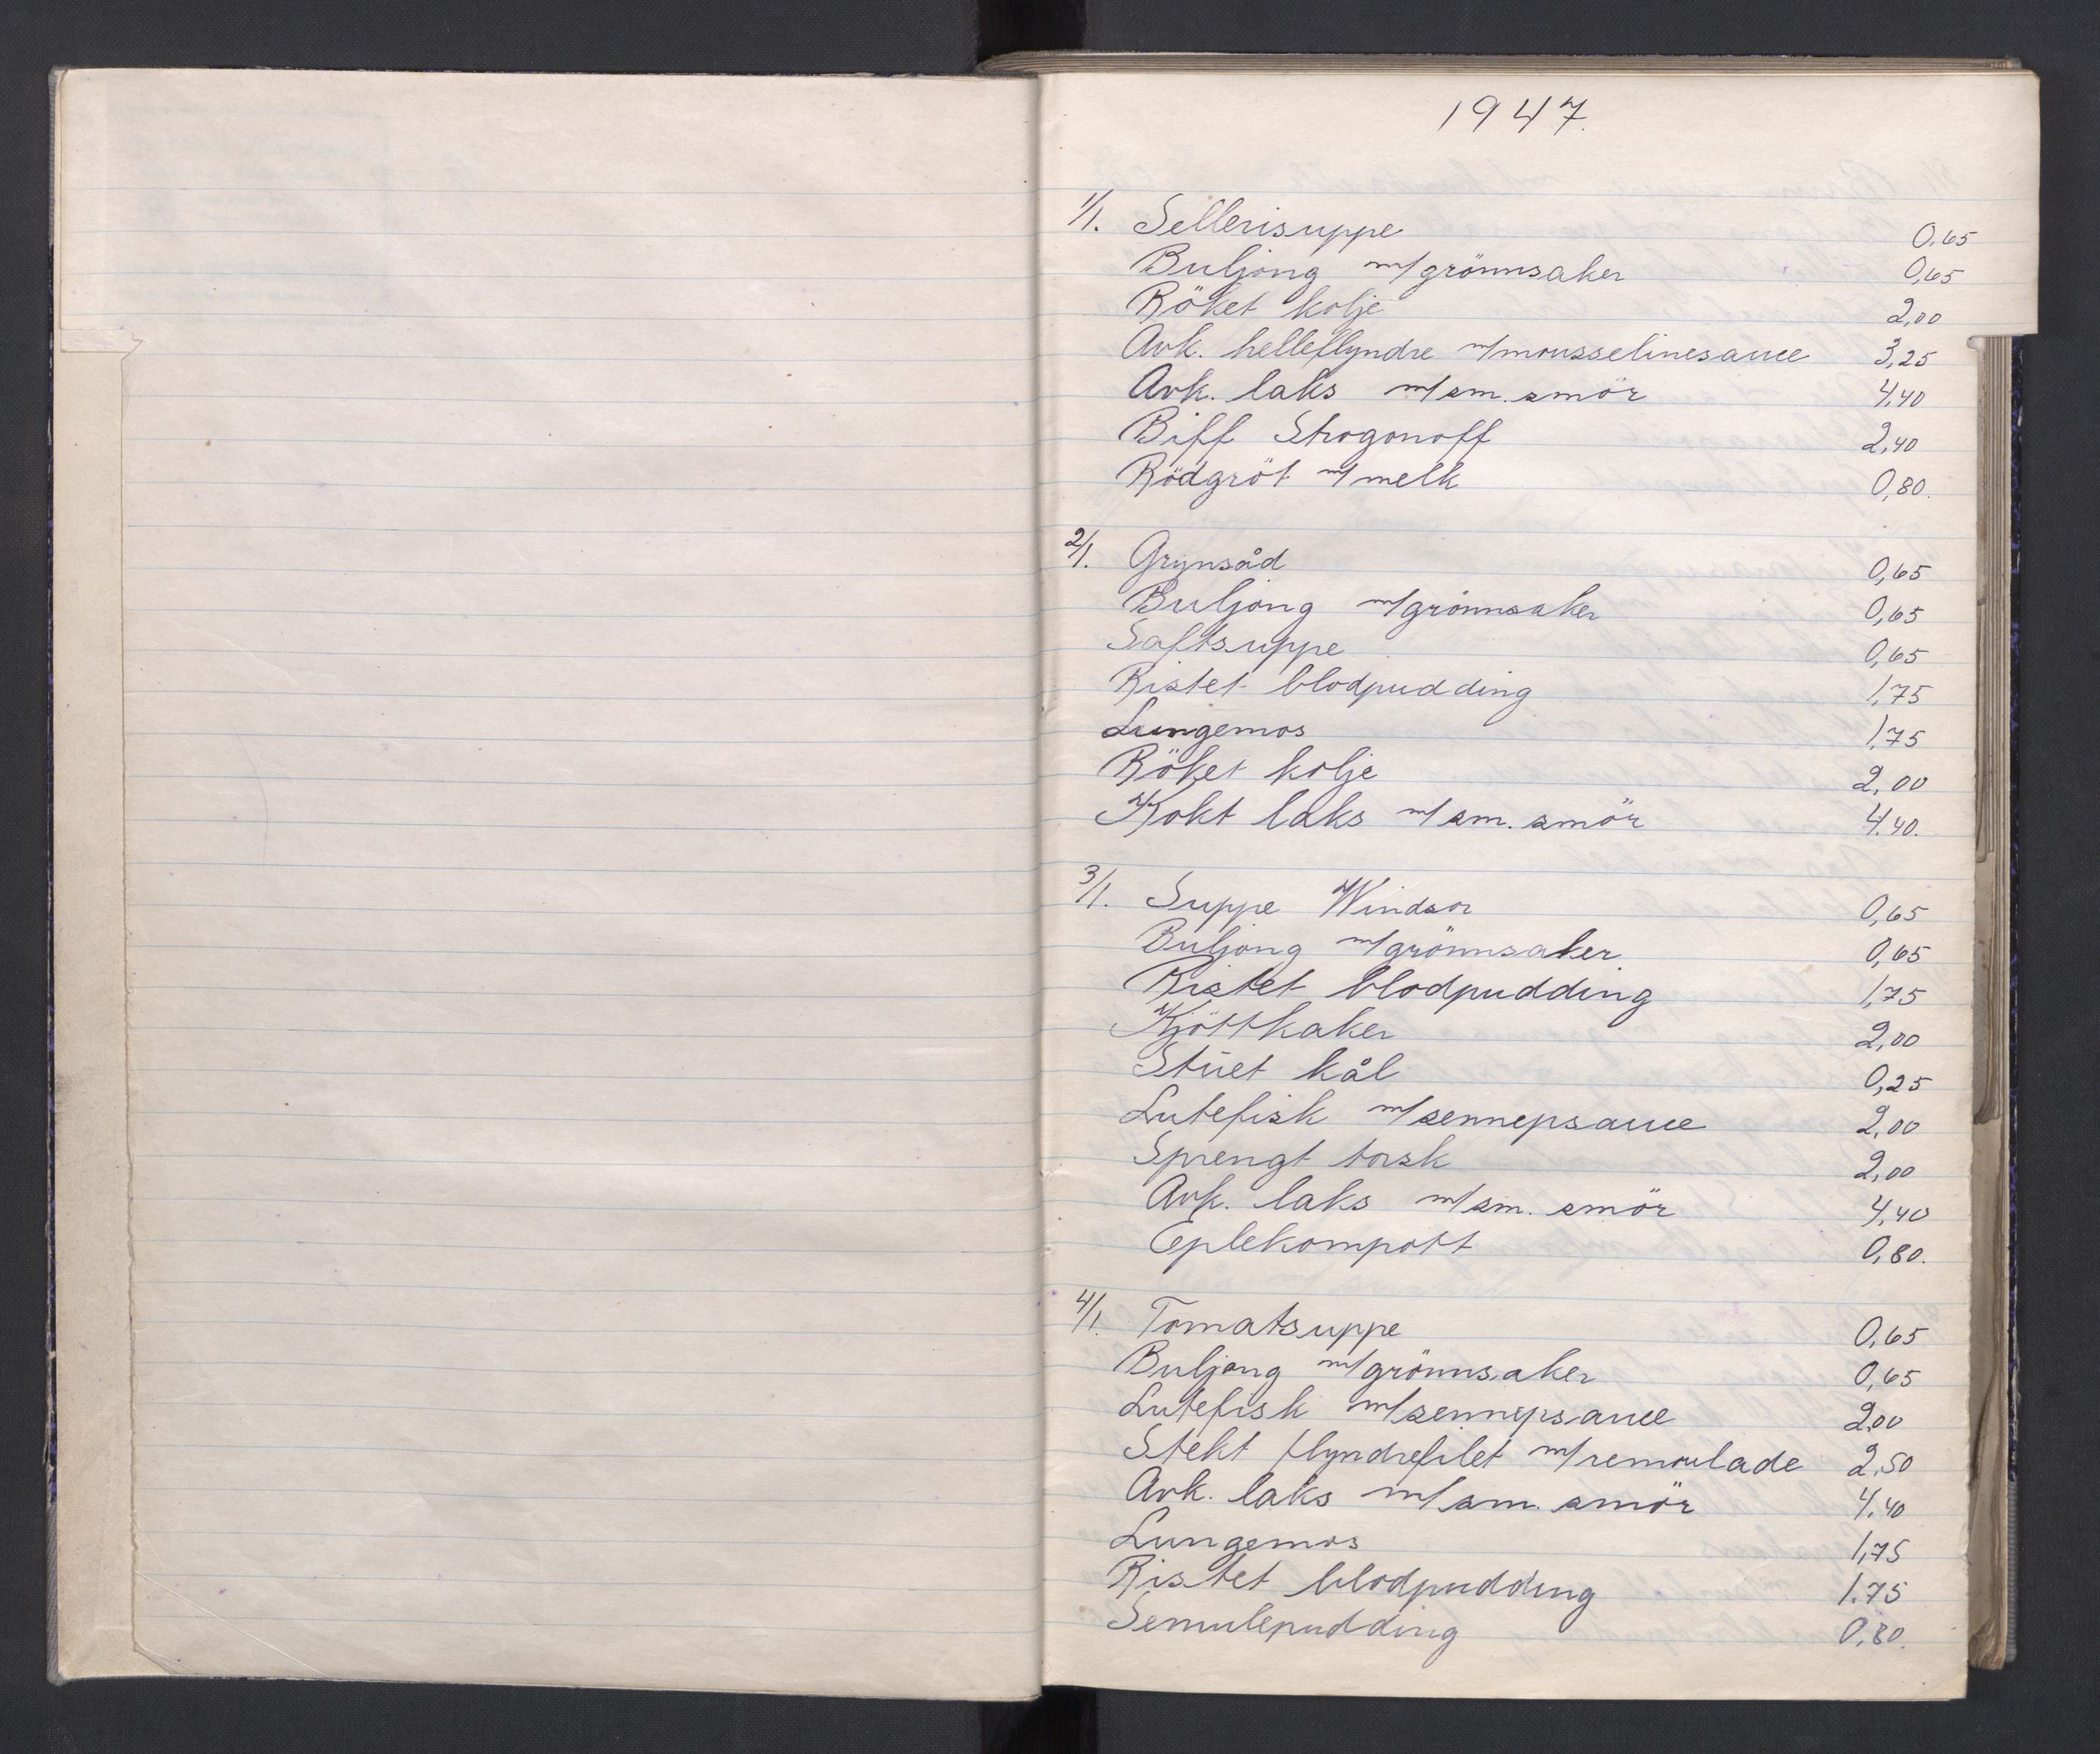 1947.
1/1. Sellerisuppe 0,65
Buljong m/grönnsaker 0,65
Röket kolje 2,00
Avk. helleflyndre m/mousselinesauce 3,25
Avk. laks m/sm. smör 4,40
Biff Strogonoff 2,40
Rödgröt m/melk 0,80.
2/1. Grynsåd 0,65
Buljong m/grönnsaker 0,65
Saftsuppe 0,65
Ristet blodpudding 1,75
Lungemos 1,75
Röket kolje 2,00
Kokt laks m/sm. smör 4.40.
3/1. Suppe Windsor 0,65
Buljong m/grönnsaker 0,65
Ristet blodpudding 1,75
Kjöttkaker 2,00
Stuet kål 0,25
Lutefisk m/sennepsauce 2,00
Sprengt torsk 2,00
Avk. laks m/sm. smör 4,40
Eplekompott 0,80.
4/1. Tomatsuppe 0,65
Buljong m/grönnsaker 0,65
Lutefisk m/sennepsauce 2,00
Stekt flyndrefilet m/remoulade 2,50
Avk. laks m/sm. smör 4,40
Lungemos 1,75
Ristet blodpudding 1.75
Semulepudding 0,80.